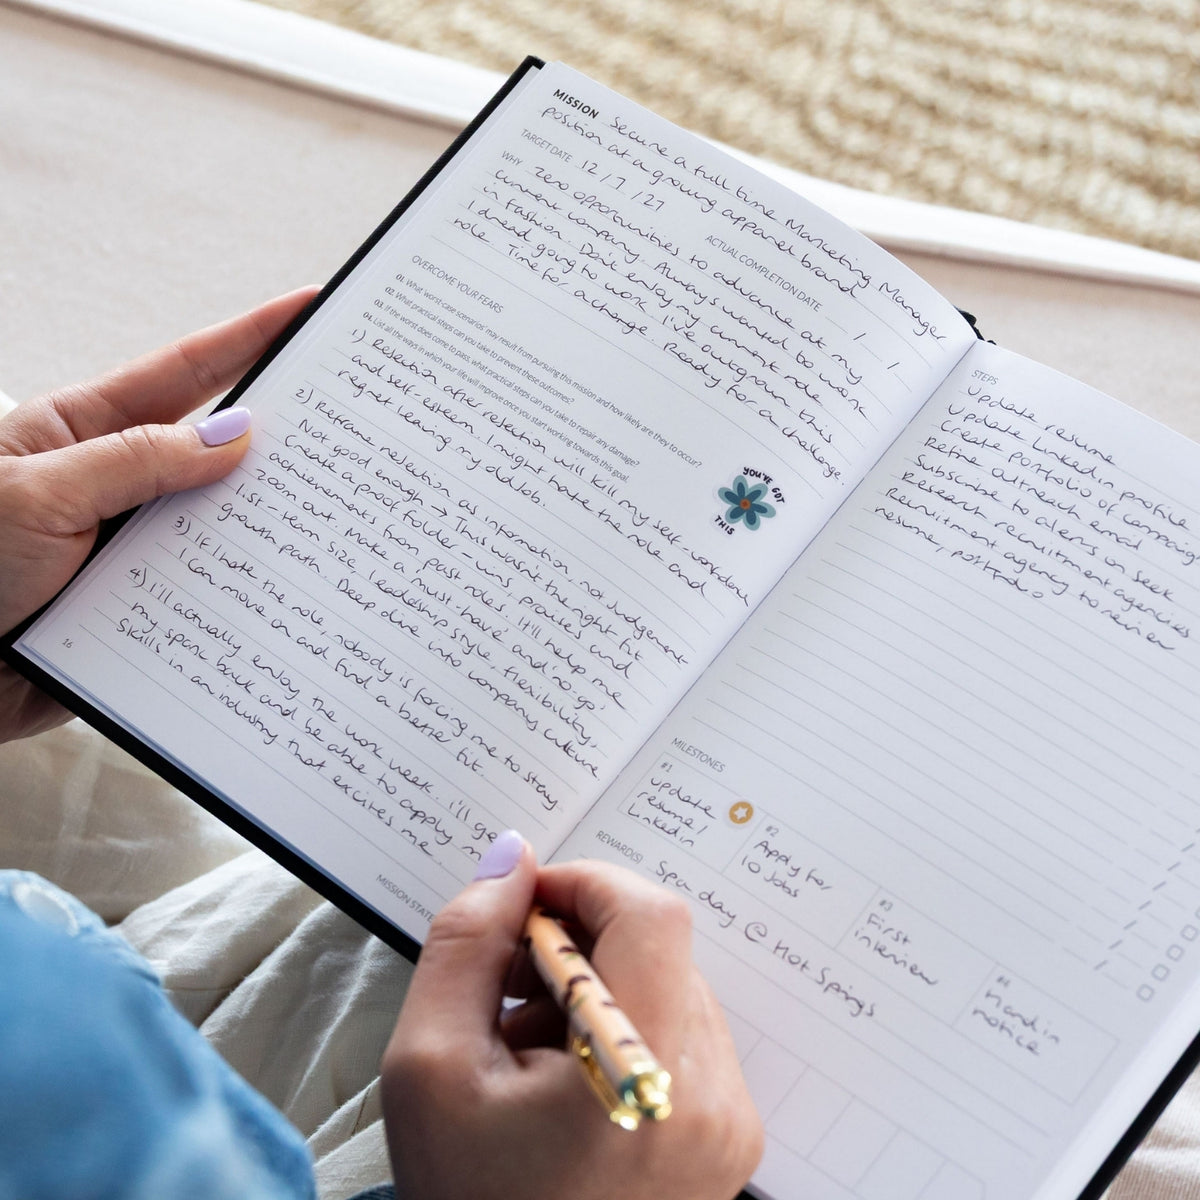 MISSION Secure a full time Marketing Manager
position at a growing apparel brand
TARGET DATE 12 / 7 / 27 ACTUAL COMPLETION DATE / /
WHY Zero opportunities to advance at my
current company. Always wanted to work
in fashion. Don't enjoy my current role
I dread going to work. I've outgrown this
role. Time for a change. Ready for a challenge.
OVERCOME YOUR FEARS
01. What 'worst-case scenarios' may result from pursuing this mission and how likely are they to occur?
02. What practical steps can you take to prevent these outcomes?
03. If the worst does come to pass, what practical steps can you take to repair any damage?
04. List all the ways in which your life will improve once you start working towards this goal.
1) Rejection after rejection will kill my self-confidence
and self-esteem. I might hate the role and
regret leaving my old job.
YOU'VE GOT
THIS
2) Reframe rejection as information, not judgement
Not good enough → This wasn't the right fit
Create a proof folder - wins, praises and
achievements from past roles. It'll help me
zoom out. Make a 'must-have' and 'no-go'
list - team size, leadership style, flexibility,
growth path. Deep dive into company culture
3) If I hate the role, nobody is forcing me to stay.
I can move on and find a better fit.
4) I'll actually enjoy the work week. I'll get
my spark back and be able to apply
skills in an industry that excites me.
16
MISSION
STEPS
Update resume
Update LinkedIn profile
Create portfolio of campaigns
Refine outreach email
Subscribe to alerts on Seek
Research recruitment agencies
Recruitment agency to review
resume, portfolio
MILESTONES
#1
update
resume/
LinkedIn
#2
Apply for
10 jobs
#3
First
interview
#4
Hand in
notice
REWARD(S) Spa day @ Hot Springs